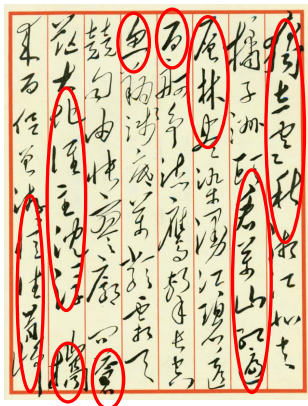 獨立寒秋湘江北去
橘子洲頭看萬山紅遍
層林盡染漫江碧透
百舸爭流鷹擊長空
魚翔淺底萬類霜天
競自由悵寥廓問蒼
茫大地誰主沉浮攜
來百侶曾遊憶往昔崢